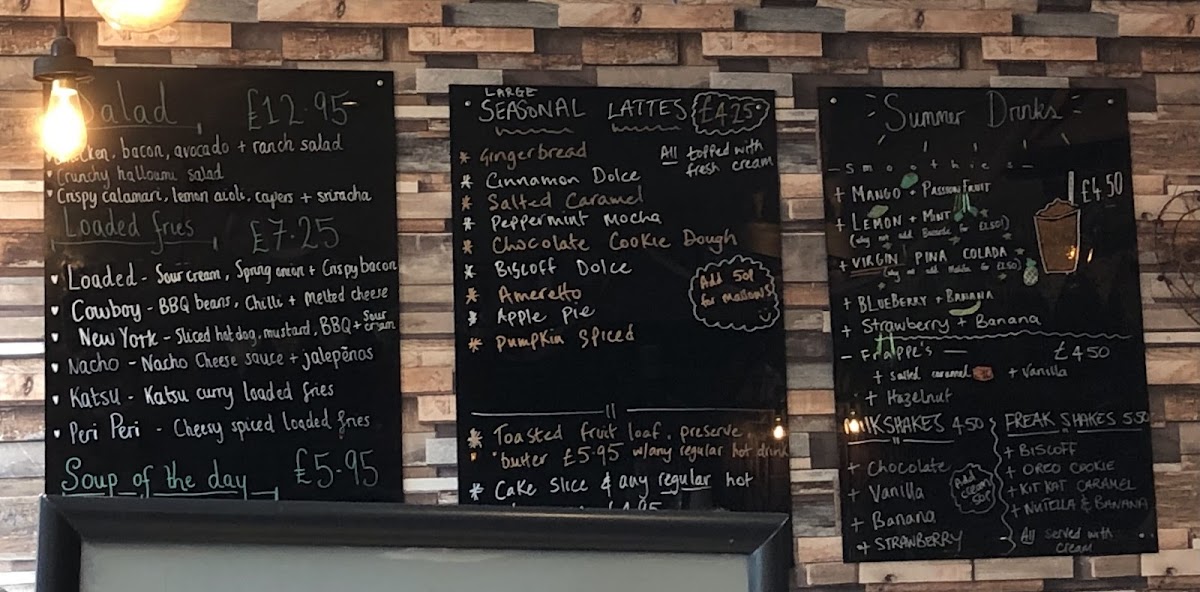 Salad £12.95
Chicken, bacon, avocado + ranch salad
Crunchy halloumi salad
Crispy calamari, lemon aioli, capers + sriracha
Loaded fries £7.25
Loaded - Sour cream, Spring onion + Crispy bacon
Cowboy - BBQ beans, Chilli + Melted cheese
New York - Sliced hot dog, mustard, BBQ + sour cream
Nacho - Nacho Cheese sauce + jalepēnos
Katsu - Katsu curry loaded fries
Peri Peri - Cheesy spiced loaded fries
Soup of the day £5.95
LARGE
SEASONAL LATTES £4.25
All topped with
fresh cream
* Gingerbread
* Cinnamon Dolce
* Salted Caramel
* Peppermint Mocha
* Chocolate Cookie Dough
* Biscoff Dolce
* Ameretto
* Apple Pie
* Pumpkin Spiced
Add 50p
for mallows
* Toasted fruit loaf, preserve,
butter £5.95 w/any regular hot drink
* Cake slice & any regular hot
£4.95
Summer Drinks
- Smoothies -
+ MANGO + PASSIONFRUIT £4.50
+ LEMON + MINT
(why not add Bacardi for £2.50!)
+ VIRGIN PINA COLADA
(why not add Malibu for £2.50)
+ BLUEBERRY + BANANA
+ Strawberry + Banana
- Frappe's - £4.50
+ salted caramel + Vanilla
+ Hazelnut
MILKSHAKES 4.50
+ Chocolate
+ Vanilla
+ Banana
+ STRAWBERRY
Add
cream
50p
FREAK SHAKES 5.50
+ BISCOFF
+ OREO COOKIE
+ KIT KAT CARAMEL
+ NUTELLA & BANANA
All served with
cream